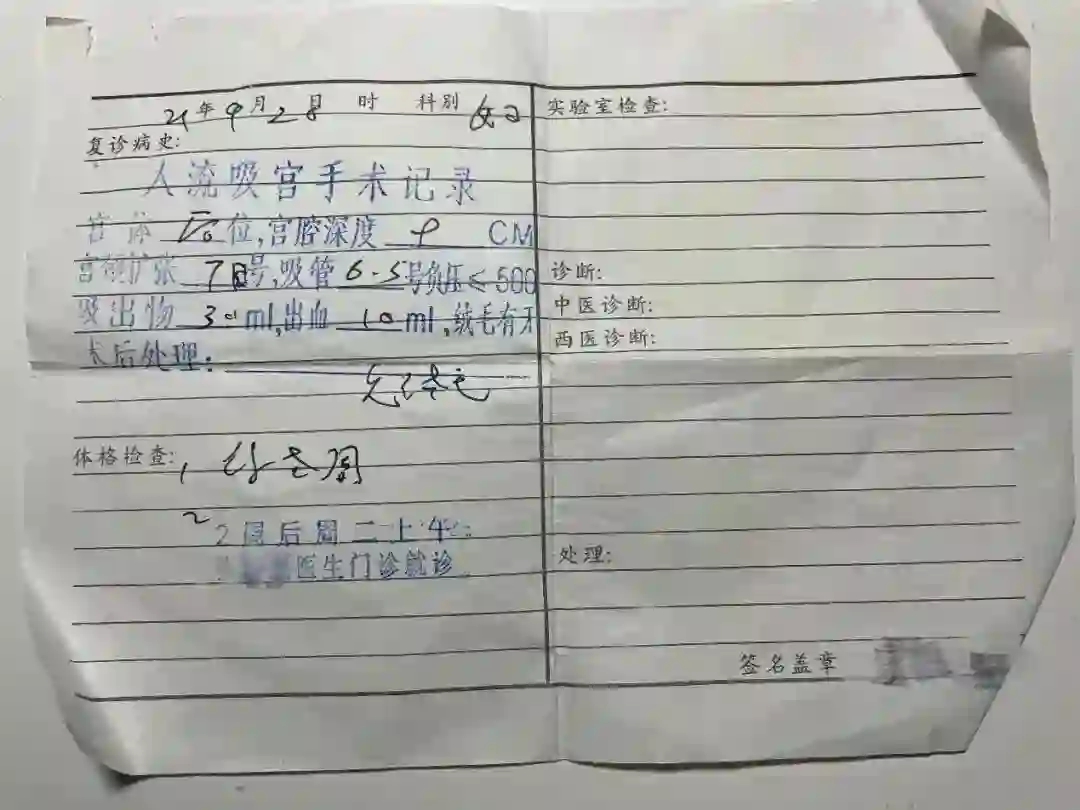 21年9月28日 时 科别 妇
复诊病史:
人流吸宫手术记录
宫体 后位,宫腔深度 9 CM
宫颈扩张 7 号,吸管 6.5 号负压≤500
吸出物 30 ml,出血 10 ml,绒毛有无
术后处理:
体格检查: 1,
2 2周后周二上午
医生门诊就诊
实验室检查:
诊断:
中医诊断:
西医诊断:
处理:
签名盖章